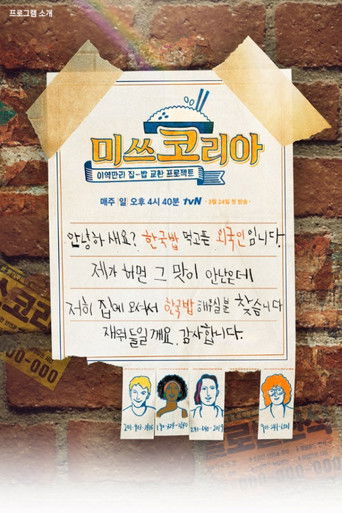 프로그램 소개
미쓰코리아
이역만리 집-밥 교환 프로젝트
매주 일 오후 4시 40분 tvN • 3월 24일 첫 방송 •
안녕하세요? 한국밥 먹고픈 외국인입니다.
제가 하면 그 맛이 안난은데
저희 집에 오셔서 한국밥 해주실분 찾습니다
재워 드릴게요. 감사합니다.
쓰코리
00-000
000-000